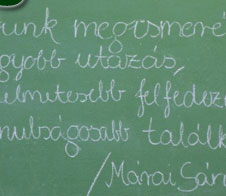 unk megismeré
gyobb utazás,
elmetesebb felfedezé
nulságosabb találk
/Márai Sán